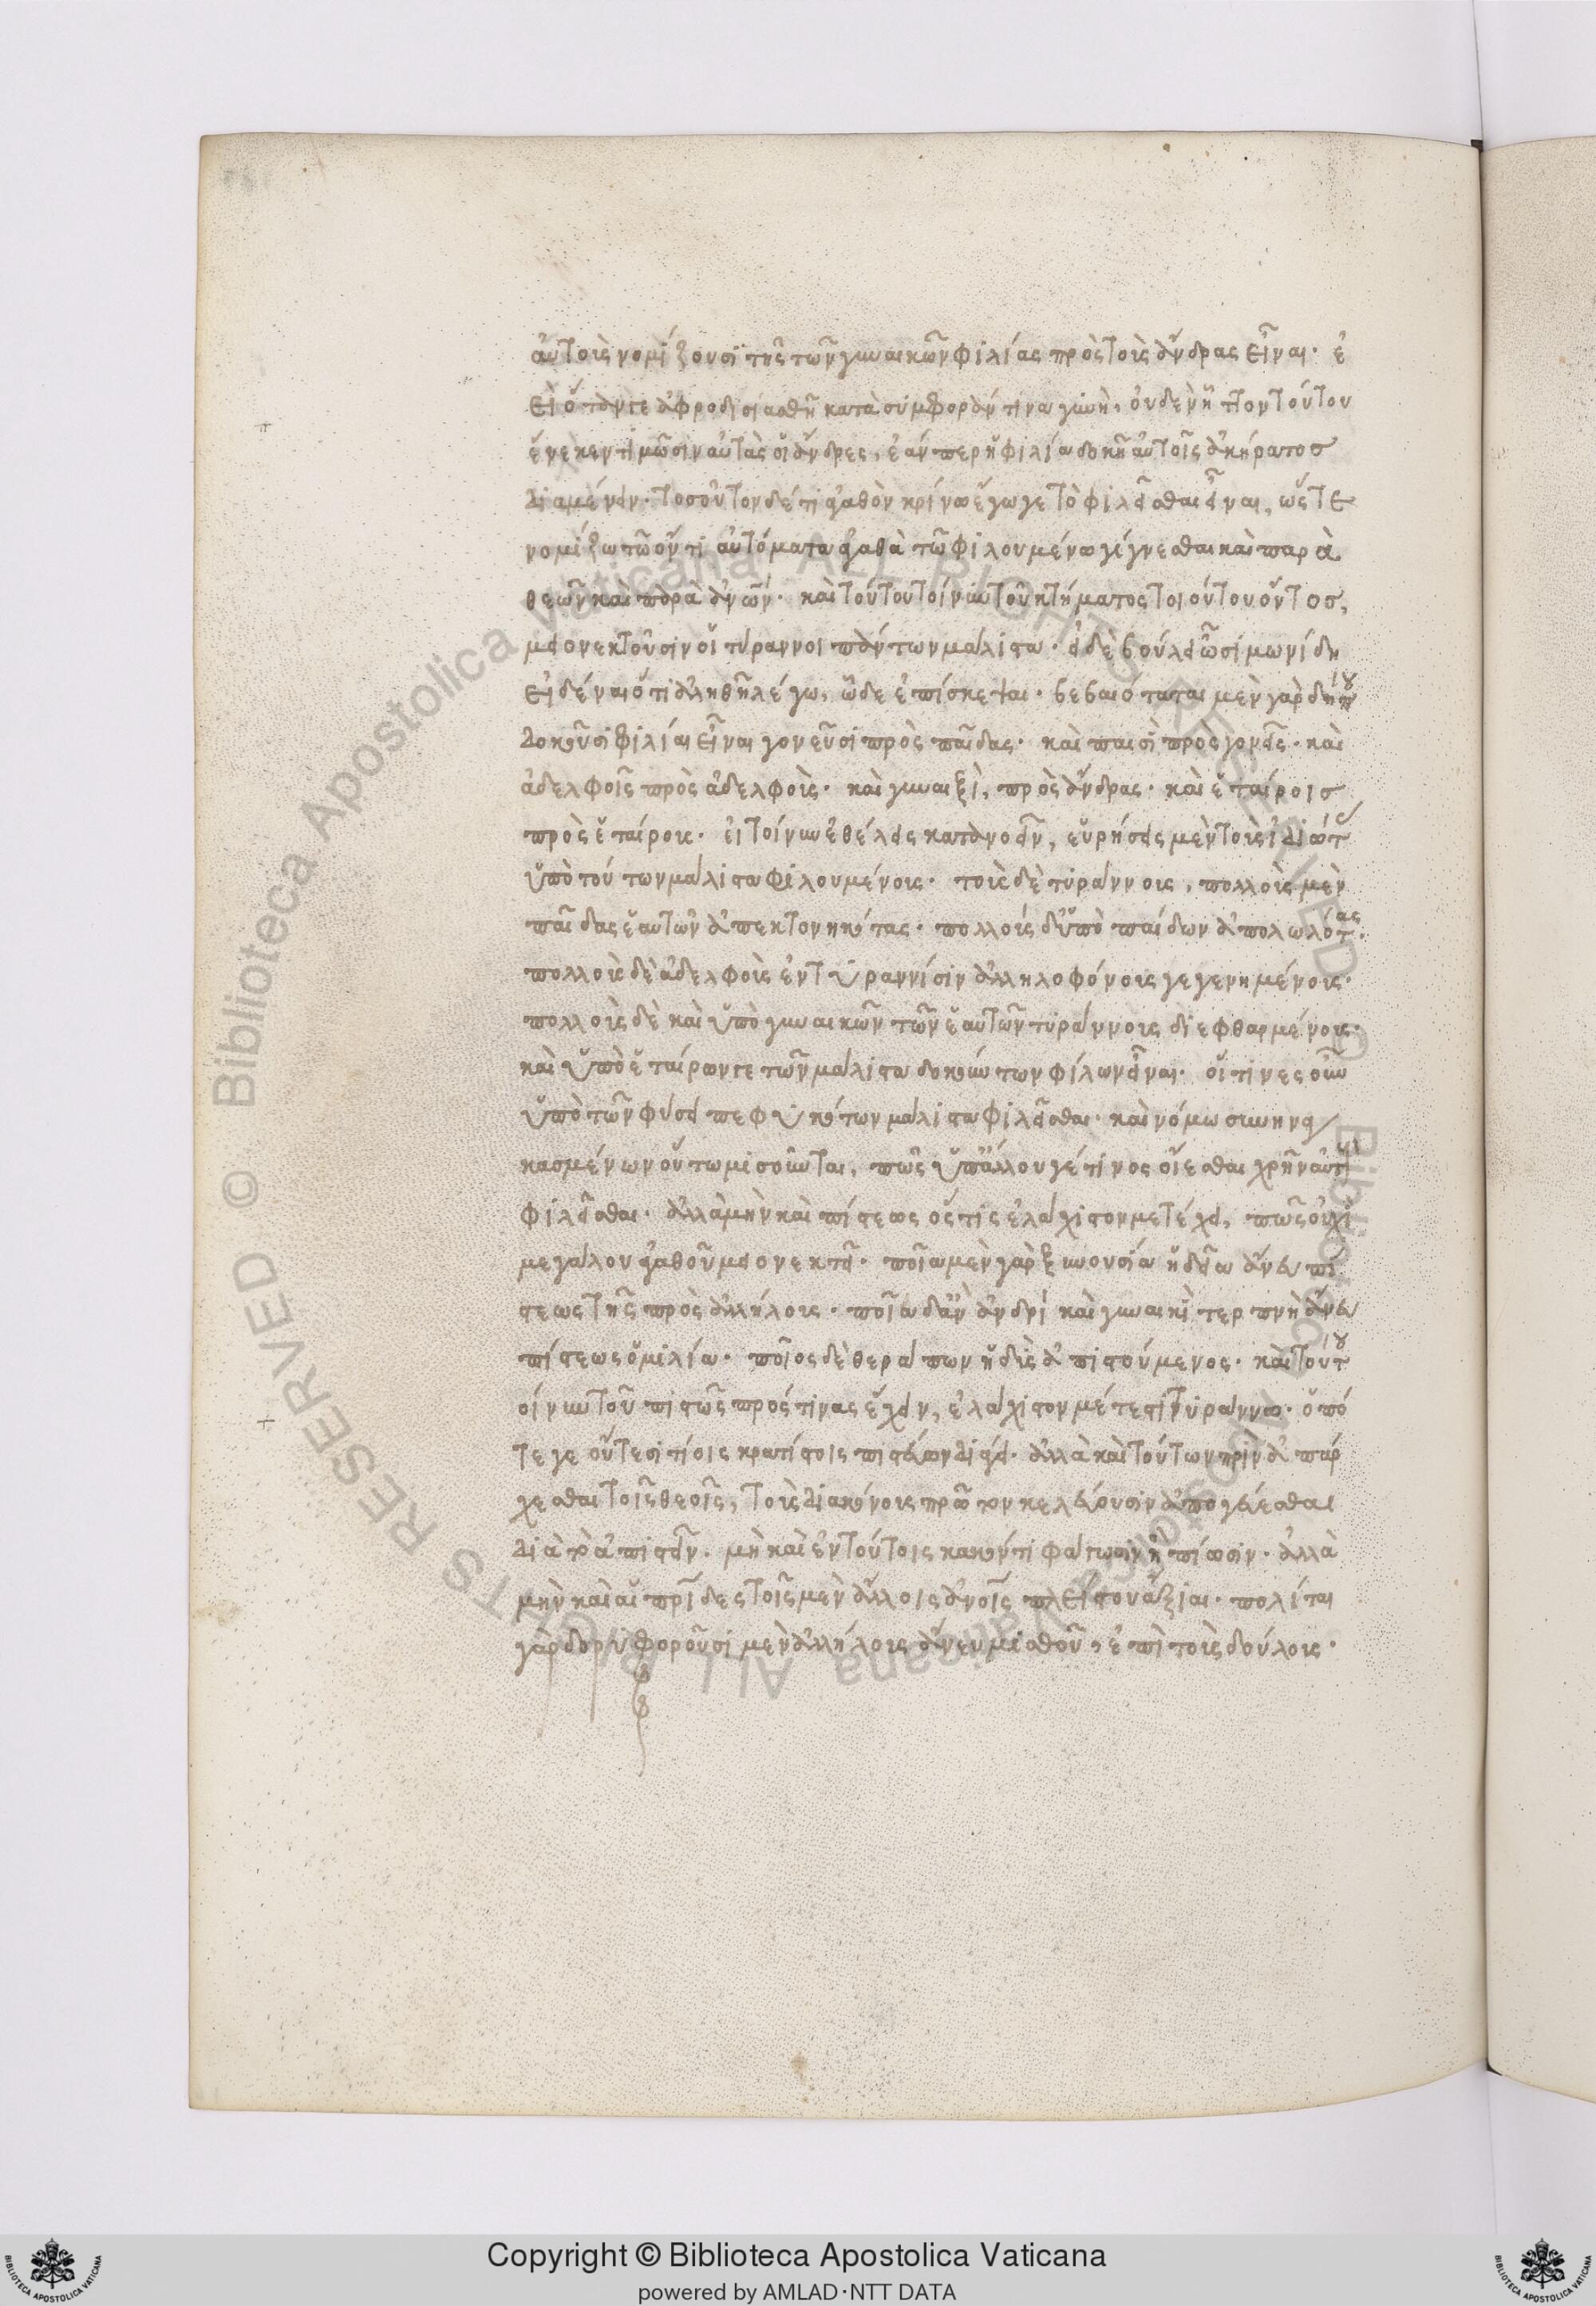 αὐτοὺς νομίζουσι τῆς τῶν γυναικῶν φιλίας πρὸς τοὺς ἄνδρας εἶναι· ἐ
εὶ ὅταν τε ἀφροδισιασθῆ κατὰ συμφοράν τινα γυνὴ, οὐδὲν ἧττον τούτου
ἕνεκεν τιμῶσιν αὐτὰς οἱ ἄνδρες, ἐάν περ ἡ φιλία δοκῆ αὐτοῖς ἀκήρατος
διαμένειν· τοσοῦτον δέ τι ἀγαθὸν κρίνω ἔγωγε τὸ φιλεῖσθαι εἶναι, ὥστε
νομίζω τῶ ὄντι αὐτόματα ἀγαθὰ τῶ φιλουμένω γίγνεσθαι καὶ παρὰ
θεῶν καὶ παρὰ ἀνων· καὶ τούτου τοίνυν τοῦ κτήματος τοιούτου ὄντος,
μειονεκτοῦσιν οἱ τύραννοι πάντων μάλιστα· εἰ δὲ βούλει ὦ σιμωνίδη
εἰδέναι ὅτι ἀληθῆ λέγω, ὧδε ἐπίσκεψαι· βεβαιόταται μὲν γὰρ δήπου
δοκοῦσι φιλίαι εἶναι γονεῦσι πρὸς παῖδας· καὶ παισὶ πρὸς γονεῖς· καὶ
ἀδελφοῖς πρὸς ἀδελφοὺς· καὶ γυναιξὶ, πρὸς ἄνδρας· καὶ ἑταίροις
πρὸς ἑταίρους· εἰ τοίνυν ἐθέλεις κατανοεῖν, εὑρήσεις μὲν τοὺς ἰδιώτ
ὑπὸ τούτων μάλιστα φιλουμένους· τοὺς δὲ τυράννους, πολλοὺς μὲν
παῖδας ἑαυτῶν ἀπεκτονηκότας· πολλοὺς δ' ὑπὸ παίδων ἀπολωλότας·
πολλοὺς δὲ ἀδελφοὺς ἐν τυραννίσιν ἀλληλοφόνους γεγενημένους·
πολλοὺς δὲ καὶ ὑπὸ γυναικῶν τῶν ἑαυτῶν τυράννους διεφθαρμένους·
καὶ ὑπὸ ἑταίρων τε τῶν μάλιστα δοκούντων φίλων εἶναι· οἵτινες οὖν
ὑπὸ τῶν φύσει πεφυκότων μάλιστα φιλεῖσθαι· καὶ νόμω συνηναγ
κασμένων οὕτω μισοῦνται, πῶς ὑπ' ἄλλου γέ τινος οἴεσθαι χρὴ αὐτοὺς
φιλεῖσθαι· ἀλλὰ μὴν καὶ πίστεως ὅστις ἐλάχιστον μετέχει, πῶς οὐχὶ
μεγάλου ἀγαθοῦ μειονεκτεῖ· ποία μὲν γὰρ ξυνουσία ἡδεῖα ἄνευ πί
στεως τῆς πρὸς ἀλλήλους· ποία δ' ἂν ἀνδρὶ καὶ γυναικὶ τερπνὴ ἄνευ
πίστεως ὁμιλία· ποῖος δὲ θεράπων ἡδὺς ἀπιστούμενος· καὶ τούτου
οίνυν τοῦ πιστῶς πρός τινας ἔχειν, ἐλάχιστον μέτεστι τυράννω· ὁπό
τε γε οὔτε σιτίοις κρατίστοις πιστεύων διάγει· ἀλλὰ καὶ τούτων πρὶν ἀπάρ
χεσθαι τοῖς θεοῖς, τοὺς διακόνους πρῶτον κελεύουσιν ἀπογεύεσθαι
διὰ τὸ ἀπιστεῖν· μὴ καὶ ἐν τούτοις κακόν τι φάγωσιν ἢ πίωσιν· ἀλλὰ
μὴν καὶ αἱ πρίδες τοῖς μὲν ἄλλοις ἀνοις πλείστου ἄξιαι· πολίται
γὰρ δορυφοροῦσι μὲν ἀλλήλους ἄνευ μισθοῦ, ἐπὶ τοὺς δούλους·
Copyright © Biblioteca Apostolica Vaticana
powered by AMLAD·NTT DATA